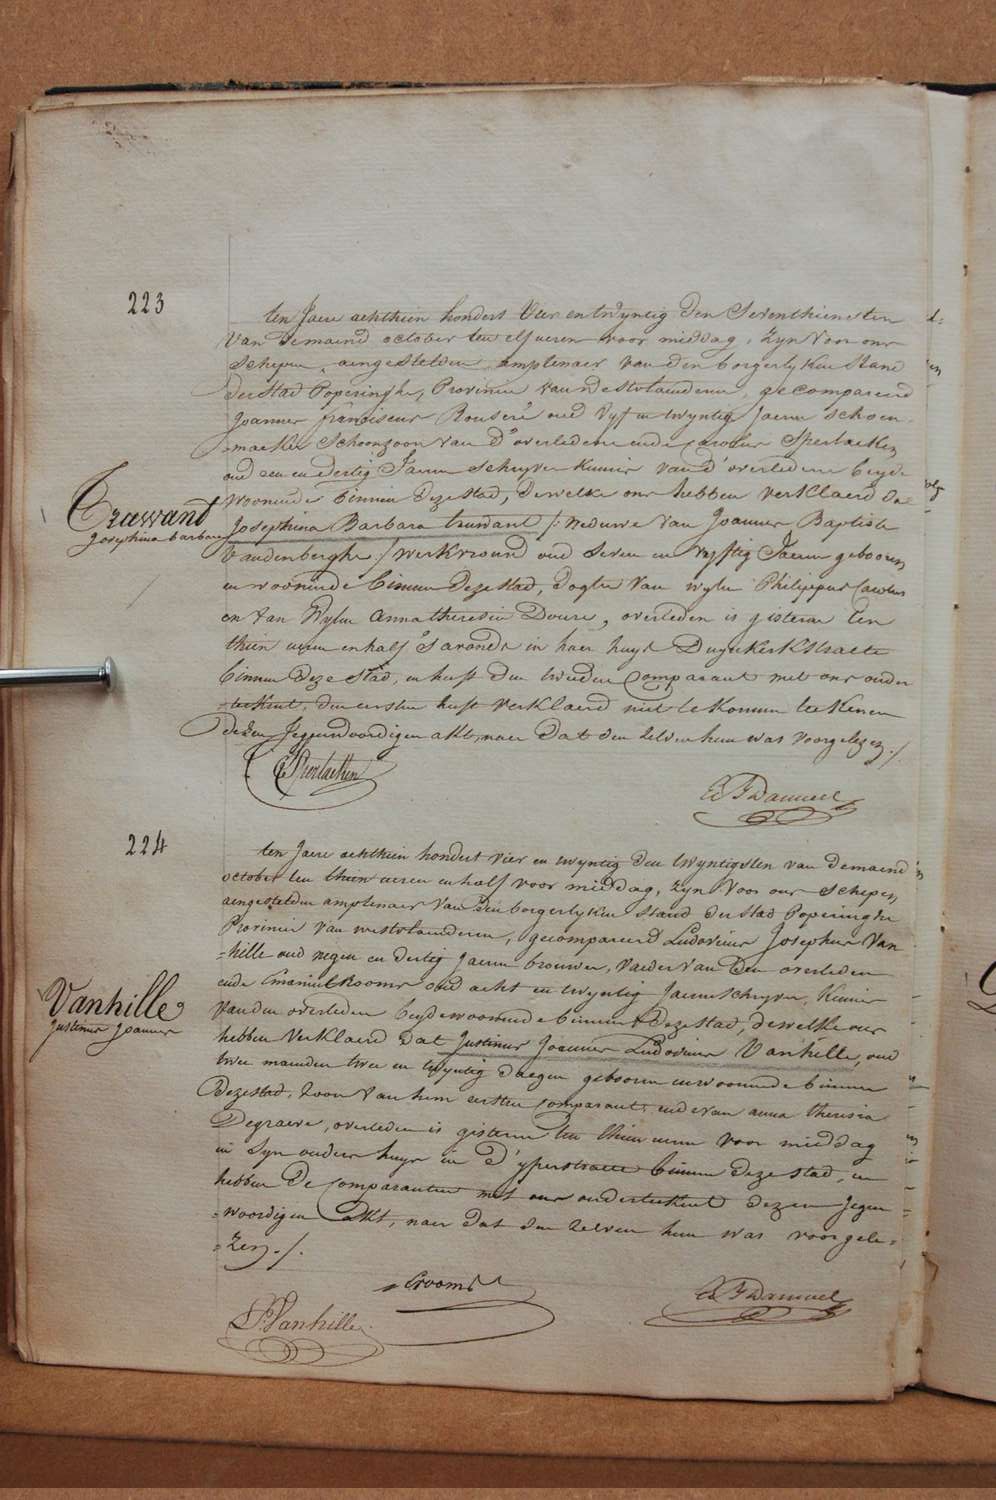 223
ten Jaere achthien hondert vier en twyntig den Seventhiensten
van de maend october ten elf ueren voor middag, zyn voor ons
Schepen, aengestelden amptenaer van den borgerlyken Stand
der Stad Poperinghe, Provincie van Westvlaenderen, gecompareerd
Joannes franciscus oud vyf en twyntig Jaeren schoen-
=maeker Schoonzoon van d'overledene ende Carolus Sperlaeken
oud een en dertig Jaeren Schryver kennis van d'overledene beyde
woonende binnen deze stad, dewelke ons hebben verklaerd dat
Trawant
Josephina barbara
Josephina Barbara truwant /: Weduwe van Joannes Baptiste
Vandenberghe / werkvrouw oud seven en vyftig Jaeren gebooren
en woonende binnen deze stad, dogter van wylen Philippus Carolus
en van Wylen anna theresia Doure, overleden is gisteren ten
thien ueren en half s'avonds in haer huys Duynkerkstraete
binnen deze Stad, en heeft den tweeden Comparant met ons onder
=teekent, den eersten heeft verklaerd niet te konnen teekenen
dezen Jegenwoordigen akt, naer dat den zelven hun was voorgelezen ./.
C Sperlaeken
224
ten Jaere achthien hondert vier en twyntig den twyntigsten van de maend
october ten thien ueren en half voor middag, zyn voor ons Schepen,
aengestelden amptenaer van den borgerlyken Stand der Stad Poperinghe
Provincie van westvlaenderen, gecompareerd Ludovicus Josephus Van
=hille oud negen en dertig Jaeren brouwer, vader van den overleden
ende Emanuel Rooms oud acht en twyntig Jaeren Schryver, Kennis
van den overleden beyde woonende binnen deze stad, dewelke ons
Vanhille
Justinus Joannes
hebben verklaerd dat Justinus Joannes Ludovicus Vanhille, oud
twee maenden twee en twyntig daegen gebooren en woonende binnen
deze stad, zoon van hem eersten Comparant, ende van anna theresia
Degraeve, overleden is gisteren ten thien ueren voor middag
in syn ouders huys in d'yperstraete binnen deze stad, en
hebben de Comparanten met ons onderteekent dezen Jegen
=woordigen akt, naer dat den zelven hun was voorgele=
=zen ./.
E Rooms
Vanhille